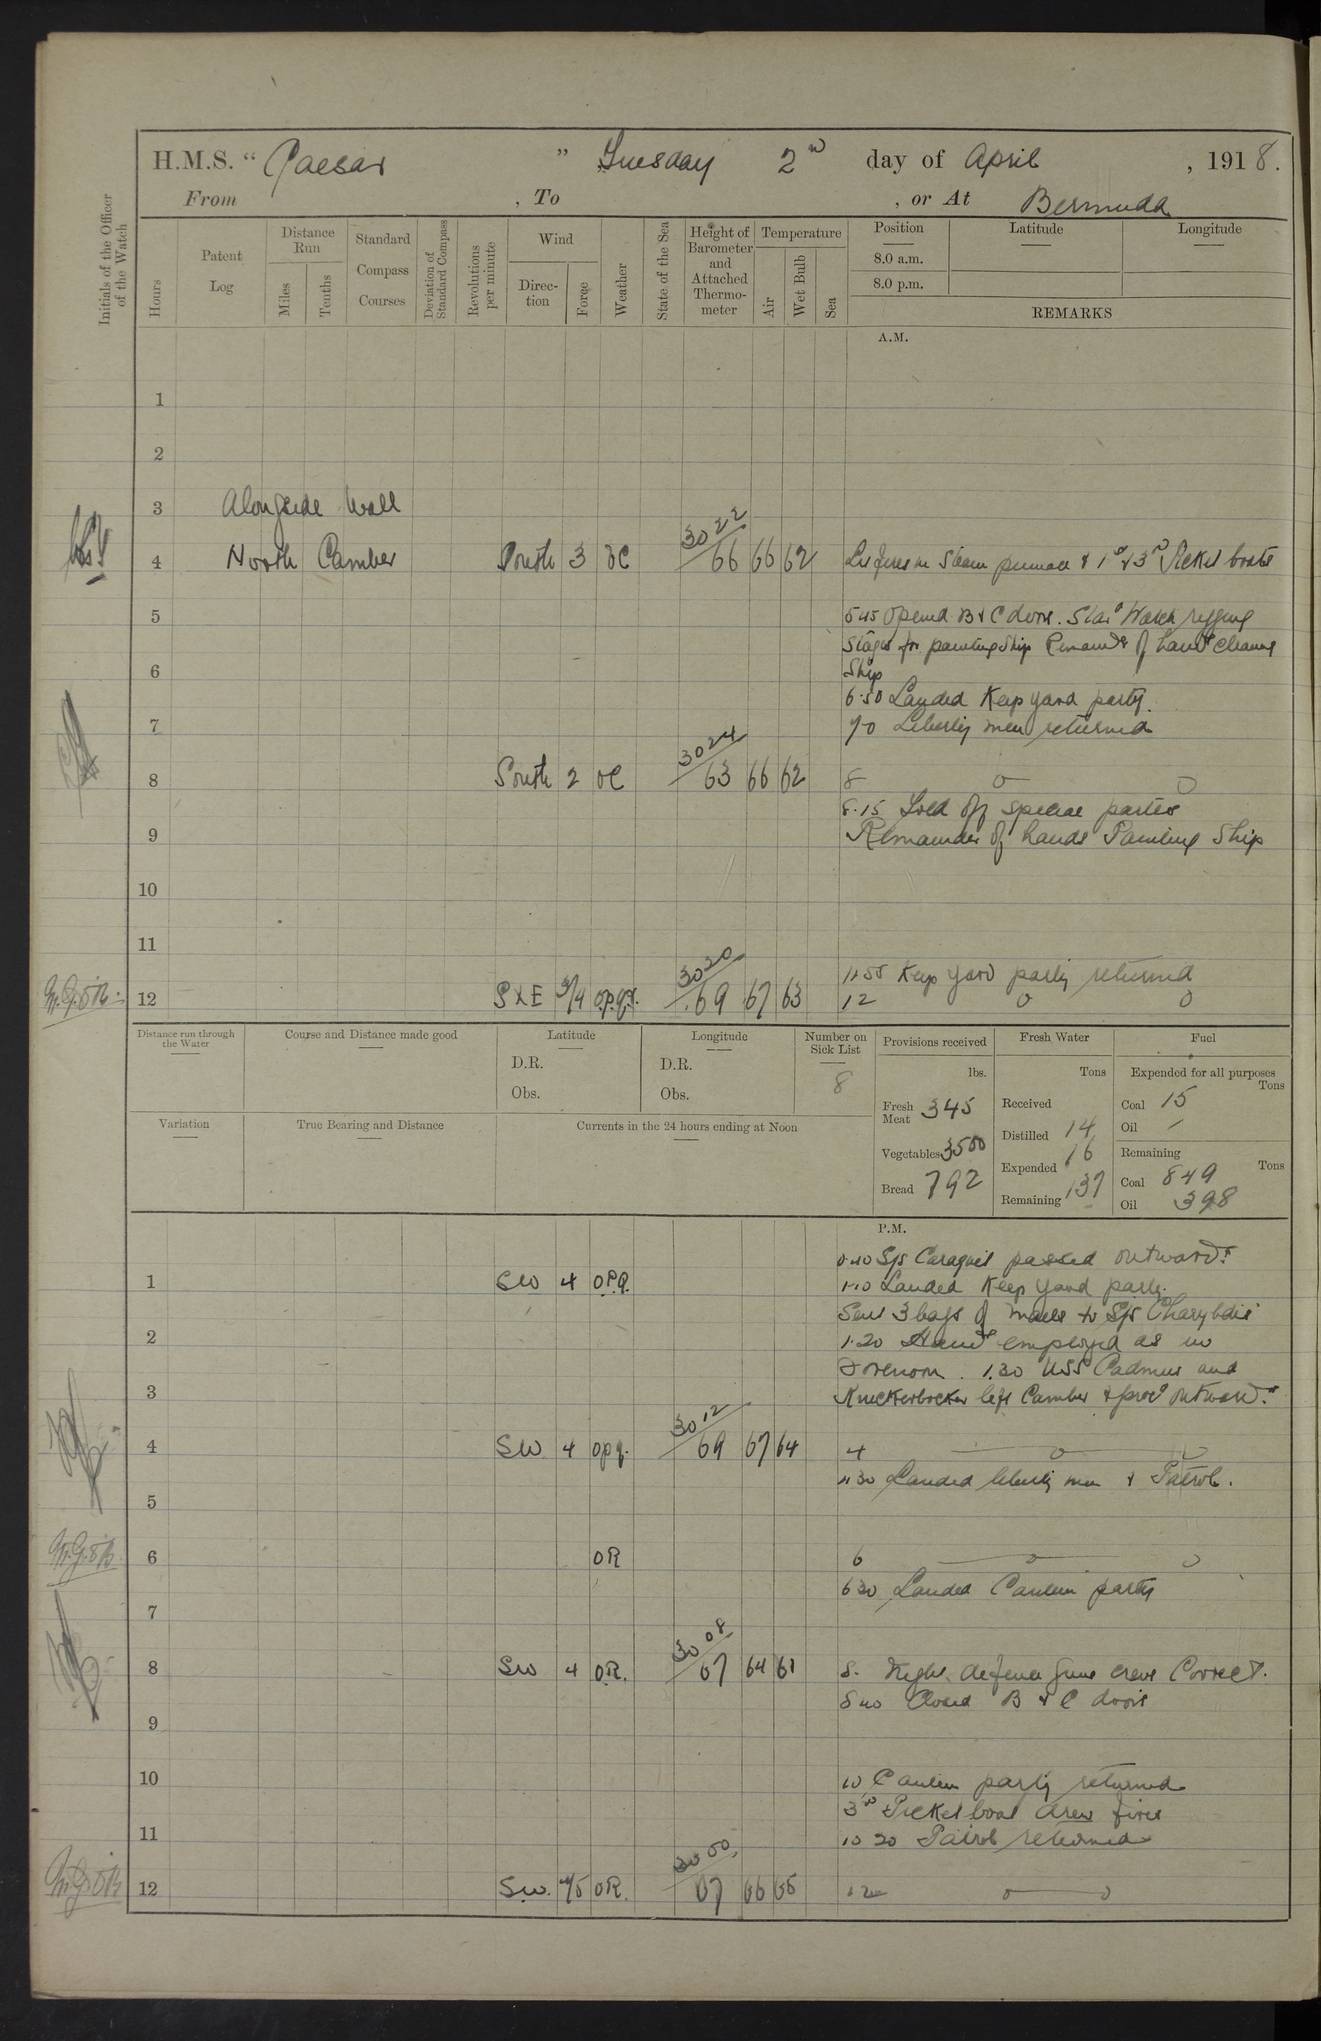 H.M.S. “ Caesar ” Tuesday 2nd day of April , 1918.
From , To , or At Bermuda
Initials of the Officer of the Watch
Hours
Patent Log
Distance Run
Miles
Tenths
Standard Compass Courses
Deviation of Standard Compass
Revolutions per minute
Wind
Direc-tion
Force
Weather
State of the Sea
Height of Barometer and Attached Thermo-meter
Temperature
Air
Wet Bulb
Sea
Position Latitude Longitude
8.0 a.m.
8.0 p.m.
REMARKS
A.M.
1
2
3 Alongside Wall
4 North Camber South 3 OC 3022 66 66 62 Lit fires in Steam pinnace & 1st & 3rd Picket boats
5 5.45 Opened B & C doors. Star'd Watch rigging
Stages for painting Ship Remainder of hands cleaning
6 Ship
6.50 Landed Keep Yard party.
7 7.0 Liberty men returned
8 South 2 OC 3024 63 66 62 8 o o
8.15 Told off special parties
9 Remainder of hands Painting Ship
10
11
11.55 Keep yard party returned
12 S x E 3/4 o.p.q.r. 3020 69 67 63 12 o o
Distance run through the Water
Course and Distance made good
Latitude
D.R.
Obs.
Longitude
D.R.
Obs.
Number on Sick List
8
Provisions received
lbs.
Fresh Meat 345
Vegetables 3500
Bread 792
Fresh Water
Tons
Received
Distilled 14
Expended 16
Remaining 137
Fuel
Expended for all purposes
Tons
Coal 15
Oil -
Remaining
Tons
Coal 849
Oil 398
Variation
True Bearing and Distance
Currents in the 24 hours ending at Noon
P.M.
0.40 S/s Caraquet passed outwards.
1 SW 4 O.P.Q. 1.10 Landed Keep Yard party.
Sent 3 bags of mails to S/s Charybdis
2 1.20 Hands employed as in
forenoon. 1.30 USS Cadmus and
3 Knickerbocker left Camber & proc'd outwards.
4 SW 4 opq. 3012 69 67 64 4 o o
4.30 Landed liberty men & Patrol.
5
6 OR 6 o o
6 30 Landed Canteen party
7
8 SW 4 O.R. 3008 67 64 61 8. Night defence guns crews Correct.
8 40 Closed B & C doors
9
10 10 Canteen party returned
3rd Picket boat drew fires
11 10 20 Patrol returned
12 SW. 4/5 OR. 3000 67 66 65 12 o o